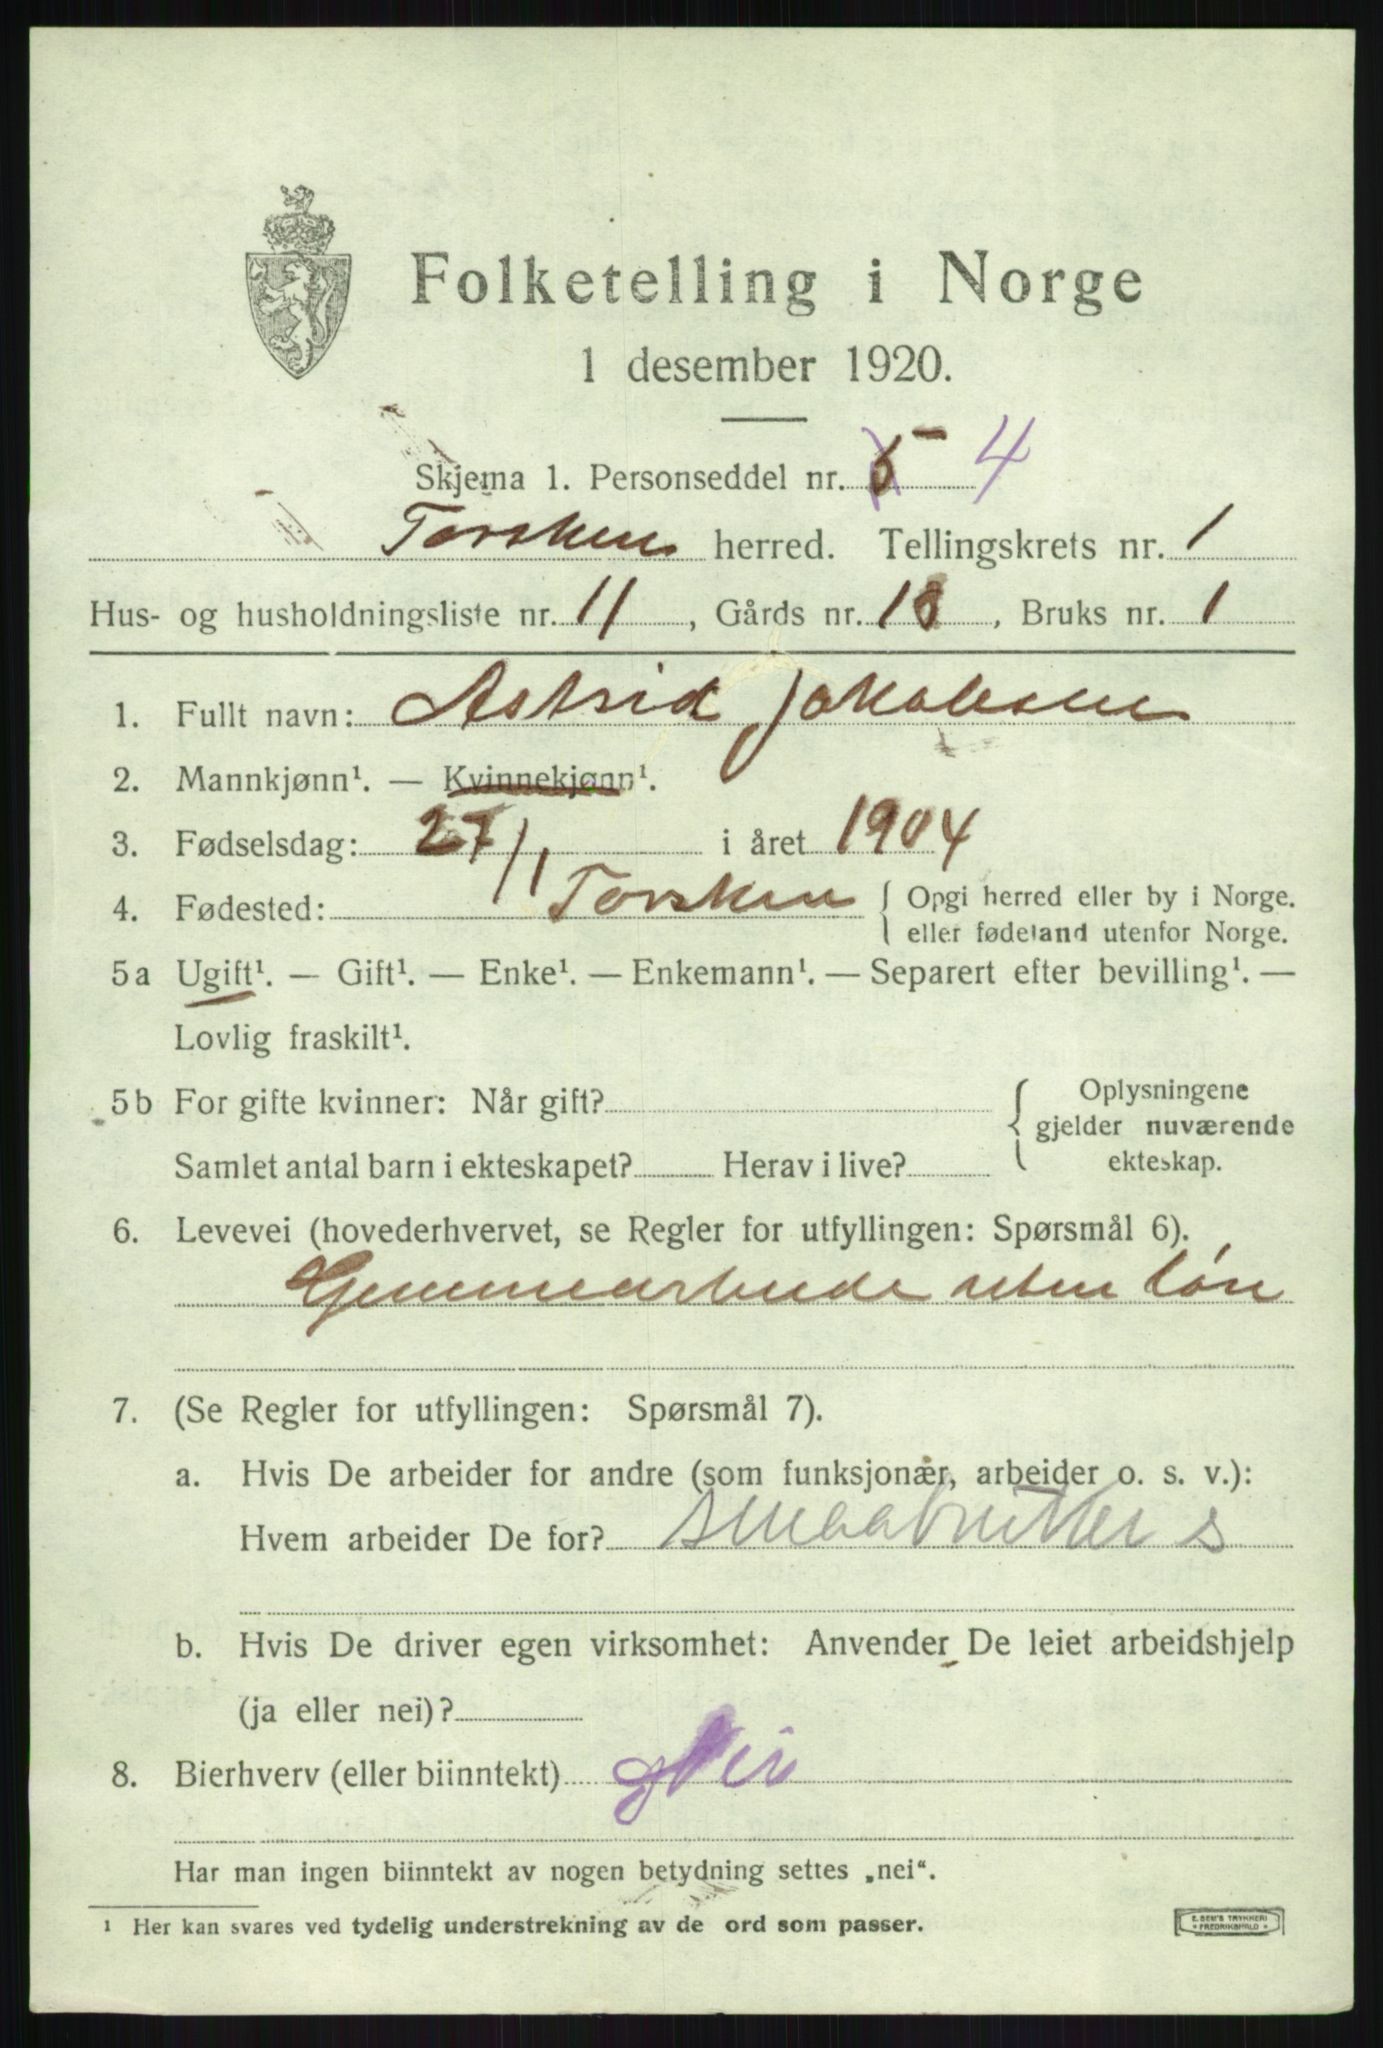 Folketelling i Norge
1 desember 1920.
Skjema 1. Personseddel nr. 4
Torsken herred. Tellingskrets nr. 1
Hus- og husholdningsliste nr. 11, Gårds nr. 18, Bruks nr. 1
1. Fullt navn: Astrid Jakobsen
2. Mannkjønn¹. — Kvinnekjønn¹.
3. Fødselsdag: 27/1 i året 1904
4. Fødested: Torsken { Opgi herred eller by i Norge.
eller fødeland utenfor Norge.
5a Ugift¹. — Gift¹. — Enke¹. — Enkemann¹. — Separert efter bevilling¹. —
Lovlig fraskilt¹.
5b For gifte kvinner: Når gift? { Oplysningene
gjelder nuværende
Samlet antal barn i ekteskapet? Herav i live? ekteskap.
6. Levevei (hovederhvervet, se Regler for utfyllingen: Spørsmål 6).
uten løn
7. (Se Regler for utfyllingen: Spørsmål 7).
a. Hvis De arbeider for andre (som funksjonær, arbeider o. s. v.):
Hvem arbeider De for? smaabruker s
b. Hvis De driver egen virksomhet: Anvender De leiet arbeidshjelp
(ja eller nei)?
8. Bierhverv (eller biinntekt)
Har man ingen biinntekt av nogen betydning settes „nei“.
¹ Her kan svares ved tydelig understrekning av de ord som passer.
E. SEM'S TRYKKERI
* FREDRIKSHALD *